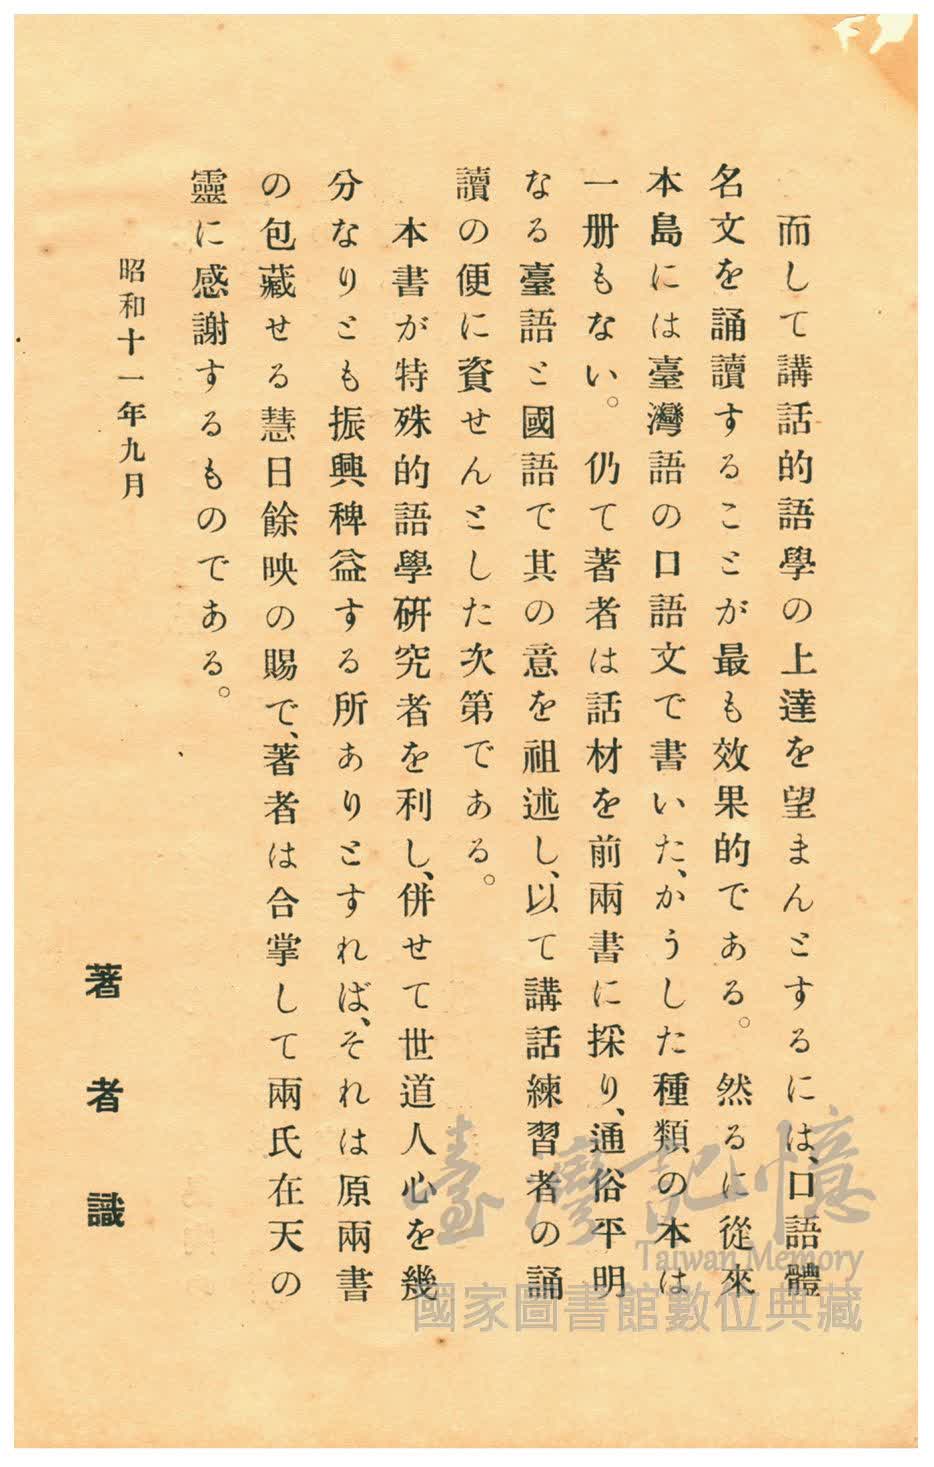 而して講話的語學の上達を望まんとするには、口語體
名文を誦讀することが最も效果的である。然るに從來
本島には臺灣語の口語文で書いた、かうした種類の本は
一册もない。仍て著者は話材を前兩書に採り、通俗平明
なる臺語と國語で其の意を祖述し、以て講話練習者の誦
讀の便に資せんとした次第である。
本書が特殊的語學研究者を利し、併せて世道人心を幾
分なりとも振興稗益する所ありとすれば、それは原兩書
の包藏せる慧日餘映の賜で、著者は合掌して兩氏在天の
靈に感謝するものである。
昭和十一年九月
著者識
臺灣記憶
Taiwan Memory
國家圖書館數位典藏